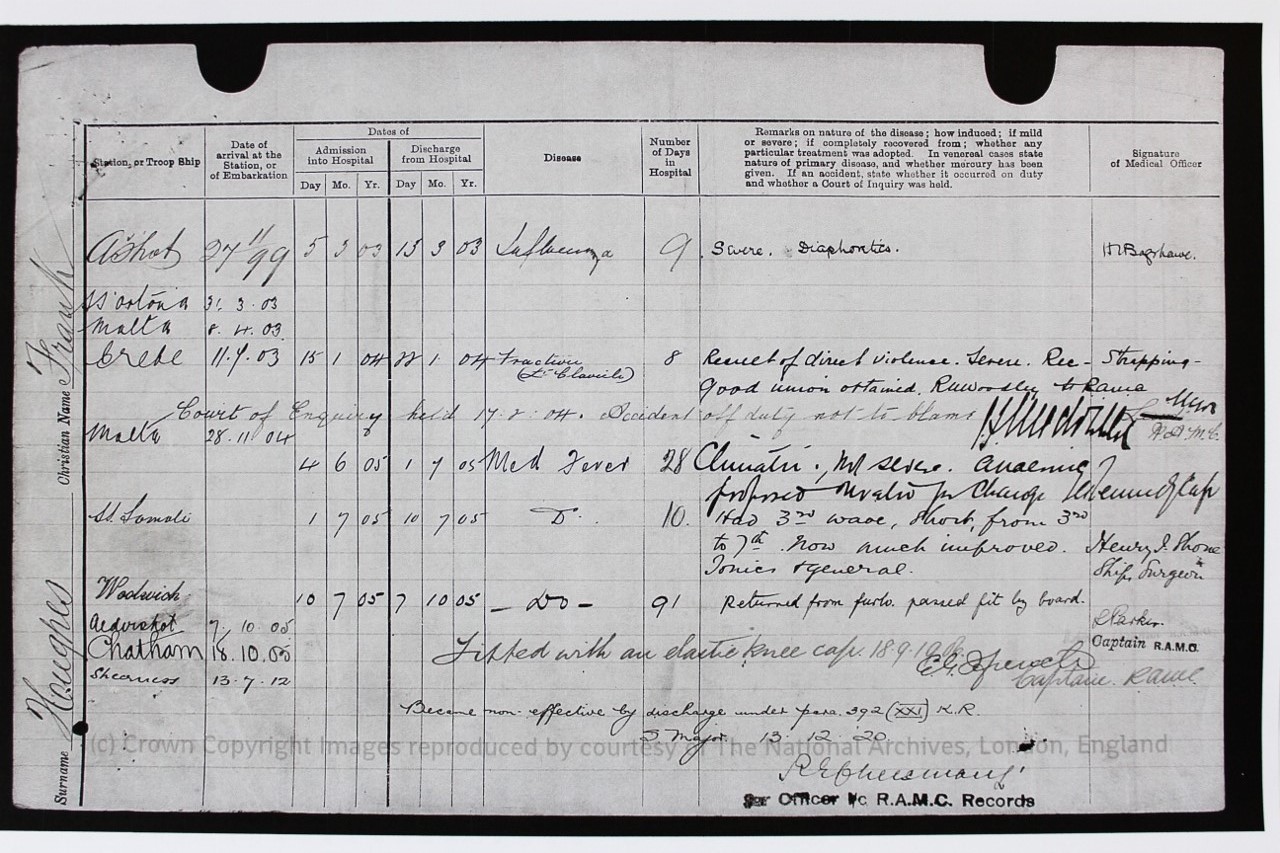 Dates of
Station, or Troop Ship
Date of arrival at the Station, or of Embarkation
Admission into Hospital
Discharge from Hospital
Disease
Number of Days in Hospital
Remarks on nature of the disease; how induced; if mild
or severe; if completely recovered from; whether any
particular treatment was adopted. In venereal cases state
nature of primary disease, and whether mercury has been
given. If an accident, state whether it occurred on duty
and whether a Court of Inquiry was held.
Signature of Medical Officer
Day Mo. Yr. Day Mo. Yr.
A'Shot 27 11/99 5 3 03 13 3 03 Influenza 9 Severe. Diaphoretics.
31. 3. 03
Malta 8. 4. 03
Crete 11.7.03 15 1 04 22 1 04 Fracture 8 Result of direct violence. Severe. Rec- Strapping-
(Lt Clavicle) Good union obtained.
Court of Enquiry held 17.2.04. Accident off duty not to blame
Malta 28.11.04
R.A.M.C.
4 6 05 1 7 05 Med Fever 28 Climatic. Severe. Anaemic
proposed for Change
SS. Somali 1 7 05 10 7 05 Do. 10. Had 3rd wave, short, from 3rd
to 7th. Now much improved. Henry
Tonics & general. Ship's Surgeon
Woolwich 10 7 05 7 10 05 — Do — 91 Returned from furlo. passed fit by board.
Aldershot 7. 10. 05 Parker
Captain R.A.M.C.
Chatham 18.10.05 Fitted with an elastic knee cap. 18.9.1906.
Captain RAMC
Sheerness 13.7.12
Became non-effective by discharge under para. 392 (XXI) K.R.
S. Major 13. 12. 20
for Officer i/c R.A.M.C. Records
Surname Hughes Christian Name Frank
(c) Crown Copyright Images reproduced by courtesy of The National Archives, London, England